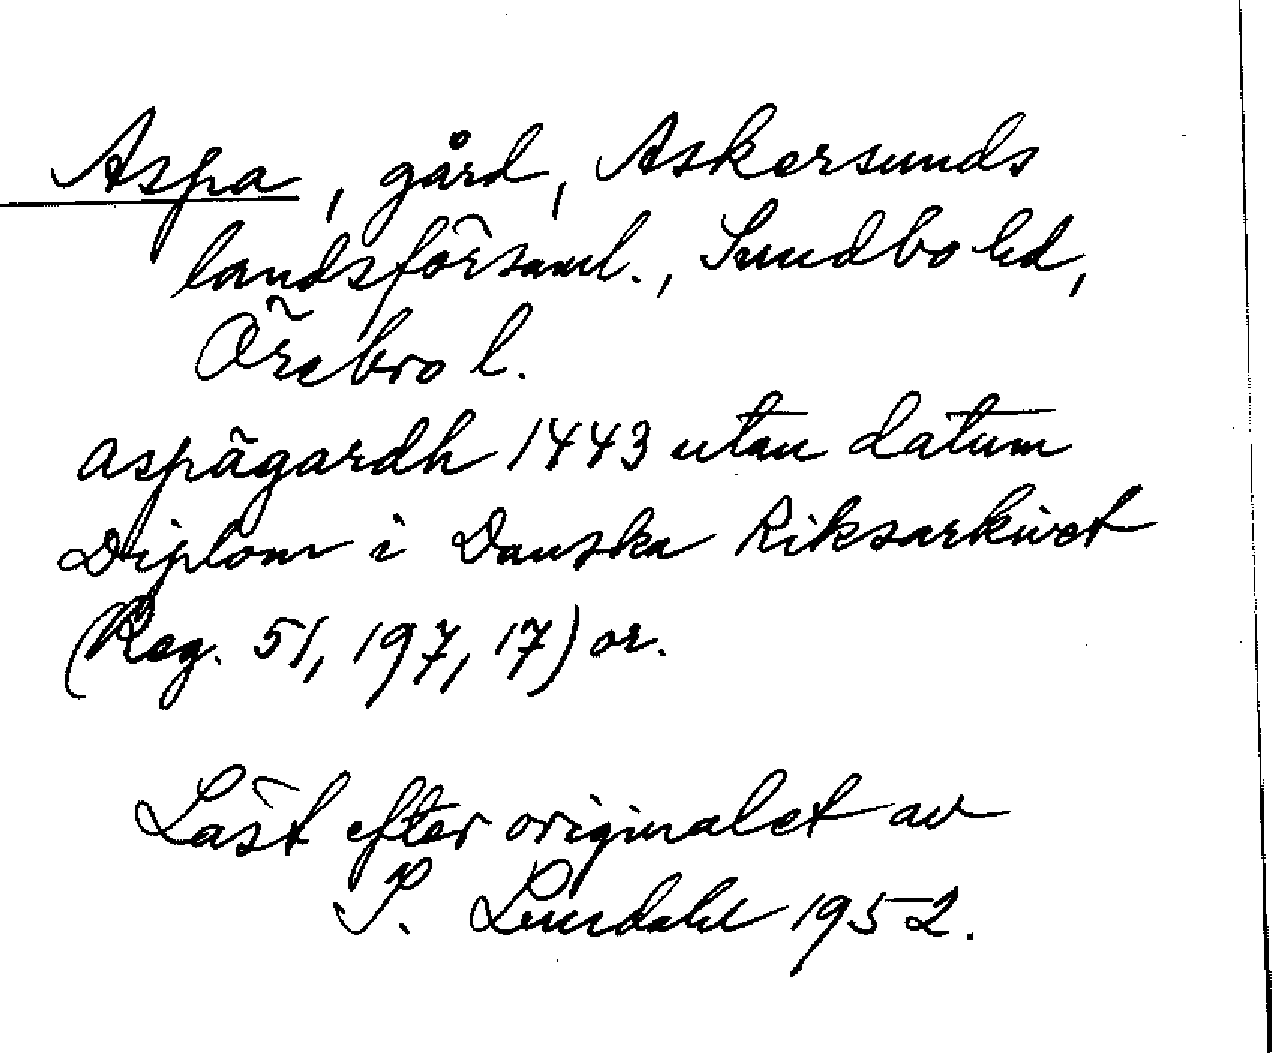 Aspa, gård, Askersunds
landsförsaml., Sundbo hd,
Örebro l.
aspägardh 1443 utan datum
Diplom i Danska Riksarkivet
(Reg. 51, 197, 17) or.
Läst efter originalet av
P. Lindahl 1952.